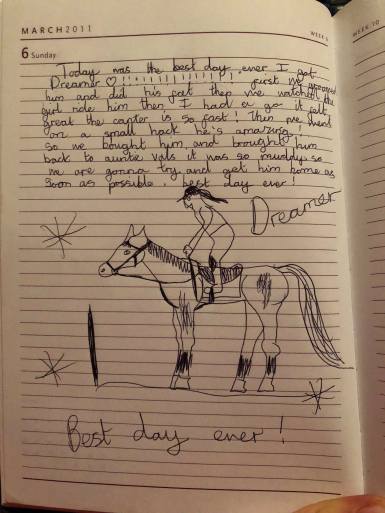 MARCH 2011
WEEK 9
WEEK 10
6 Sunday
Today was the best day ever I got
Dreamer ♡!!!!!!!!!!!!!! first we groomed
him and did his feet then we watched the
girl ride him then I had a go it felt
great the canter is so fast! Then we went
on a small hack he's amazing!
So we bought him and brought him
back to auntie vals it was so muddy so
we are gonna try and get him home as
soon as possible. best day ever!
Dreamer
Best day ever!